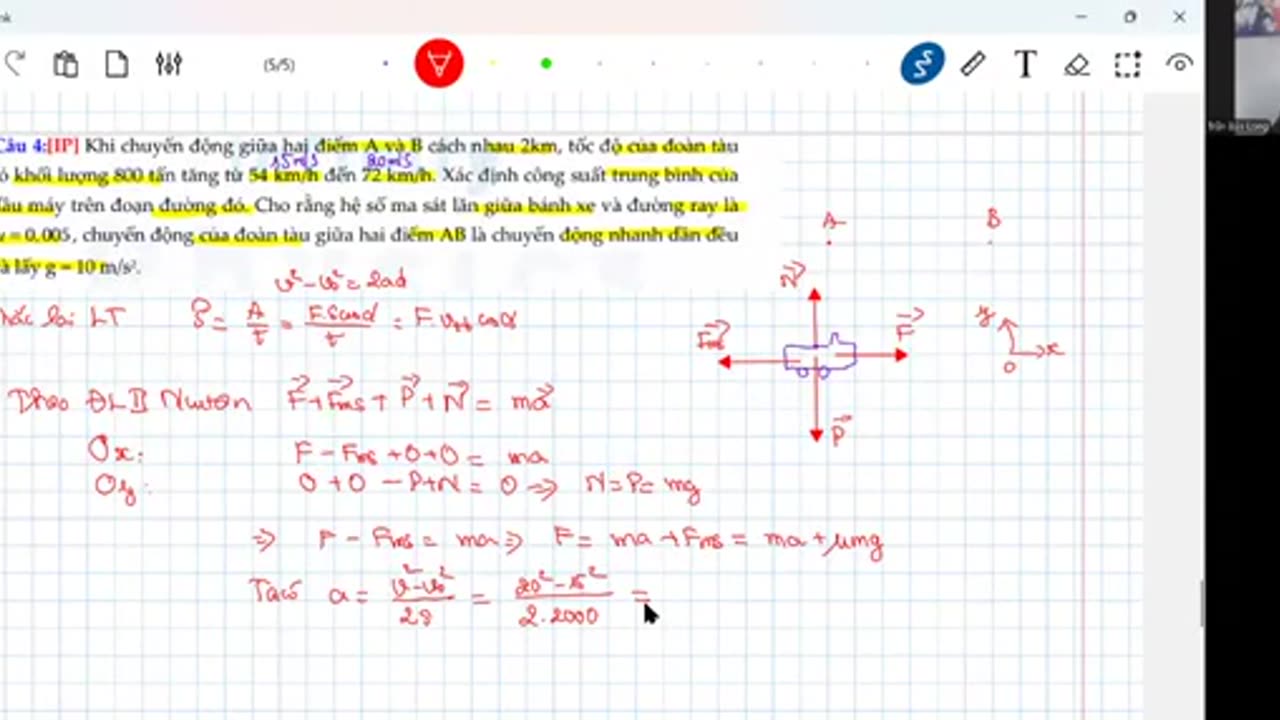 (5/5)
Câu 4:[IP] Khi chuyển động giữa hai điểm A và B cách nhau 2km, tốc độ của đoàn tàu
15m/s 20m/s
có khối lượng 800 tấn tăng từ 54 km/h đến 72 km/h. Xác định công suất trung bình của
đầu máy trên đoạn đường đó. Cho rằng hệ số ma sát lăn giữa bánh xe và đường ray là
= 0.005, chuyển động của đoàn tàu giữa hai điểm AB là chuyển động nhanh dần đều
và lấy g = 10 m/s².
v² - v₀² = 2ad
lại LT P = A/t = F.S cosα/t = F.vtb cosα
Theo ĐL II Newton F + Fms + P + N = ma
Ox: F - Fms + 0 + 0 = ma
Oy: 0 + 0 - P + N = 0 => N = P = mg
=> F - Fms = ma => F = ma + Fms = ma + μmg
Ta có a = v² - v₀²/2s = 20² - 15²/2.2000 =
A B
N
Fms F
P
y
x
O